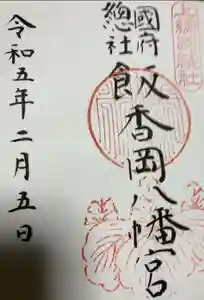 國府
總社
飯香岡八幡宮
令和五年二月五日